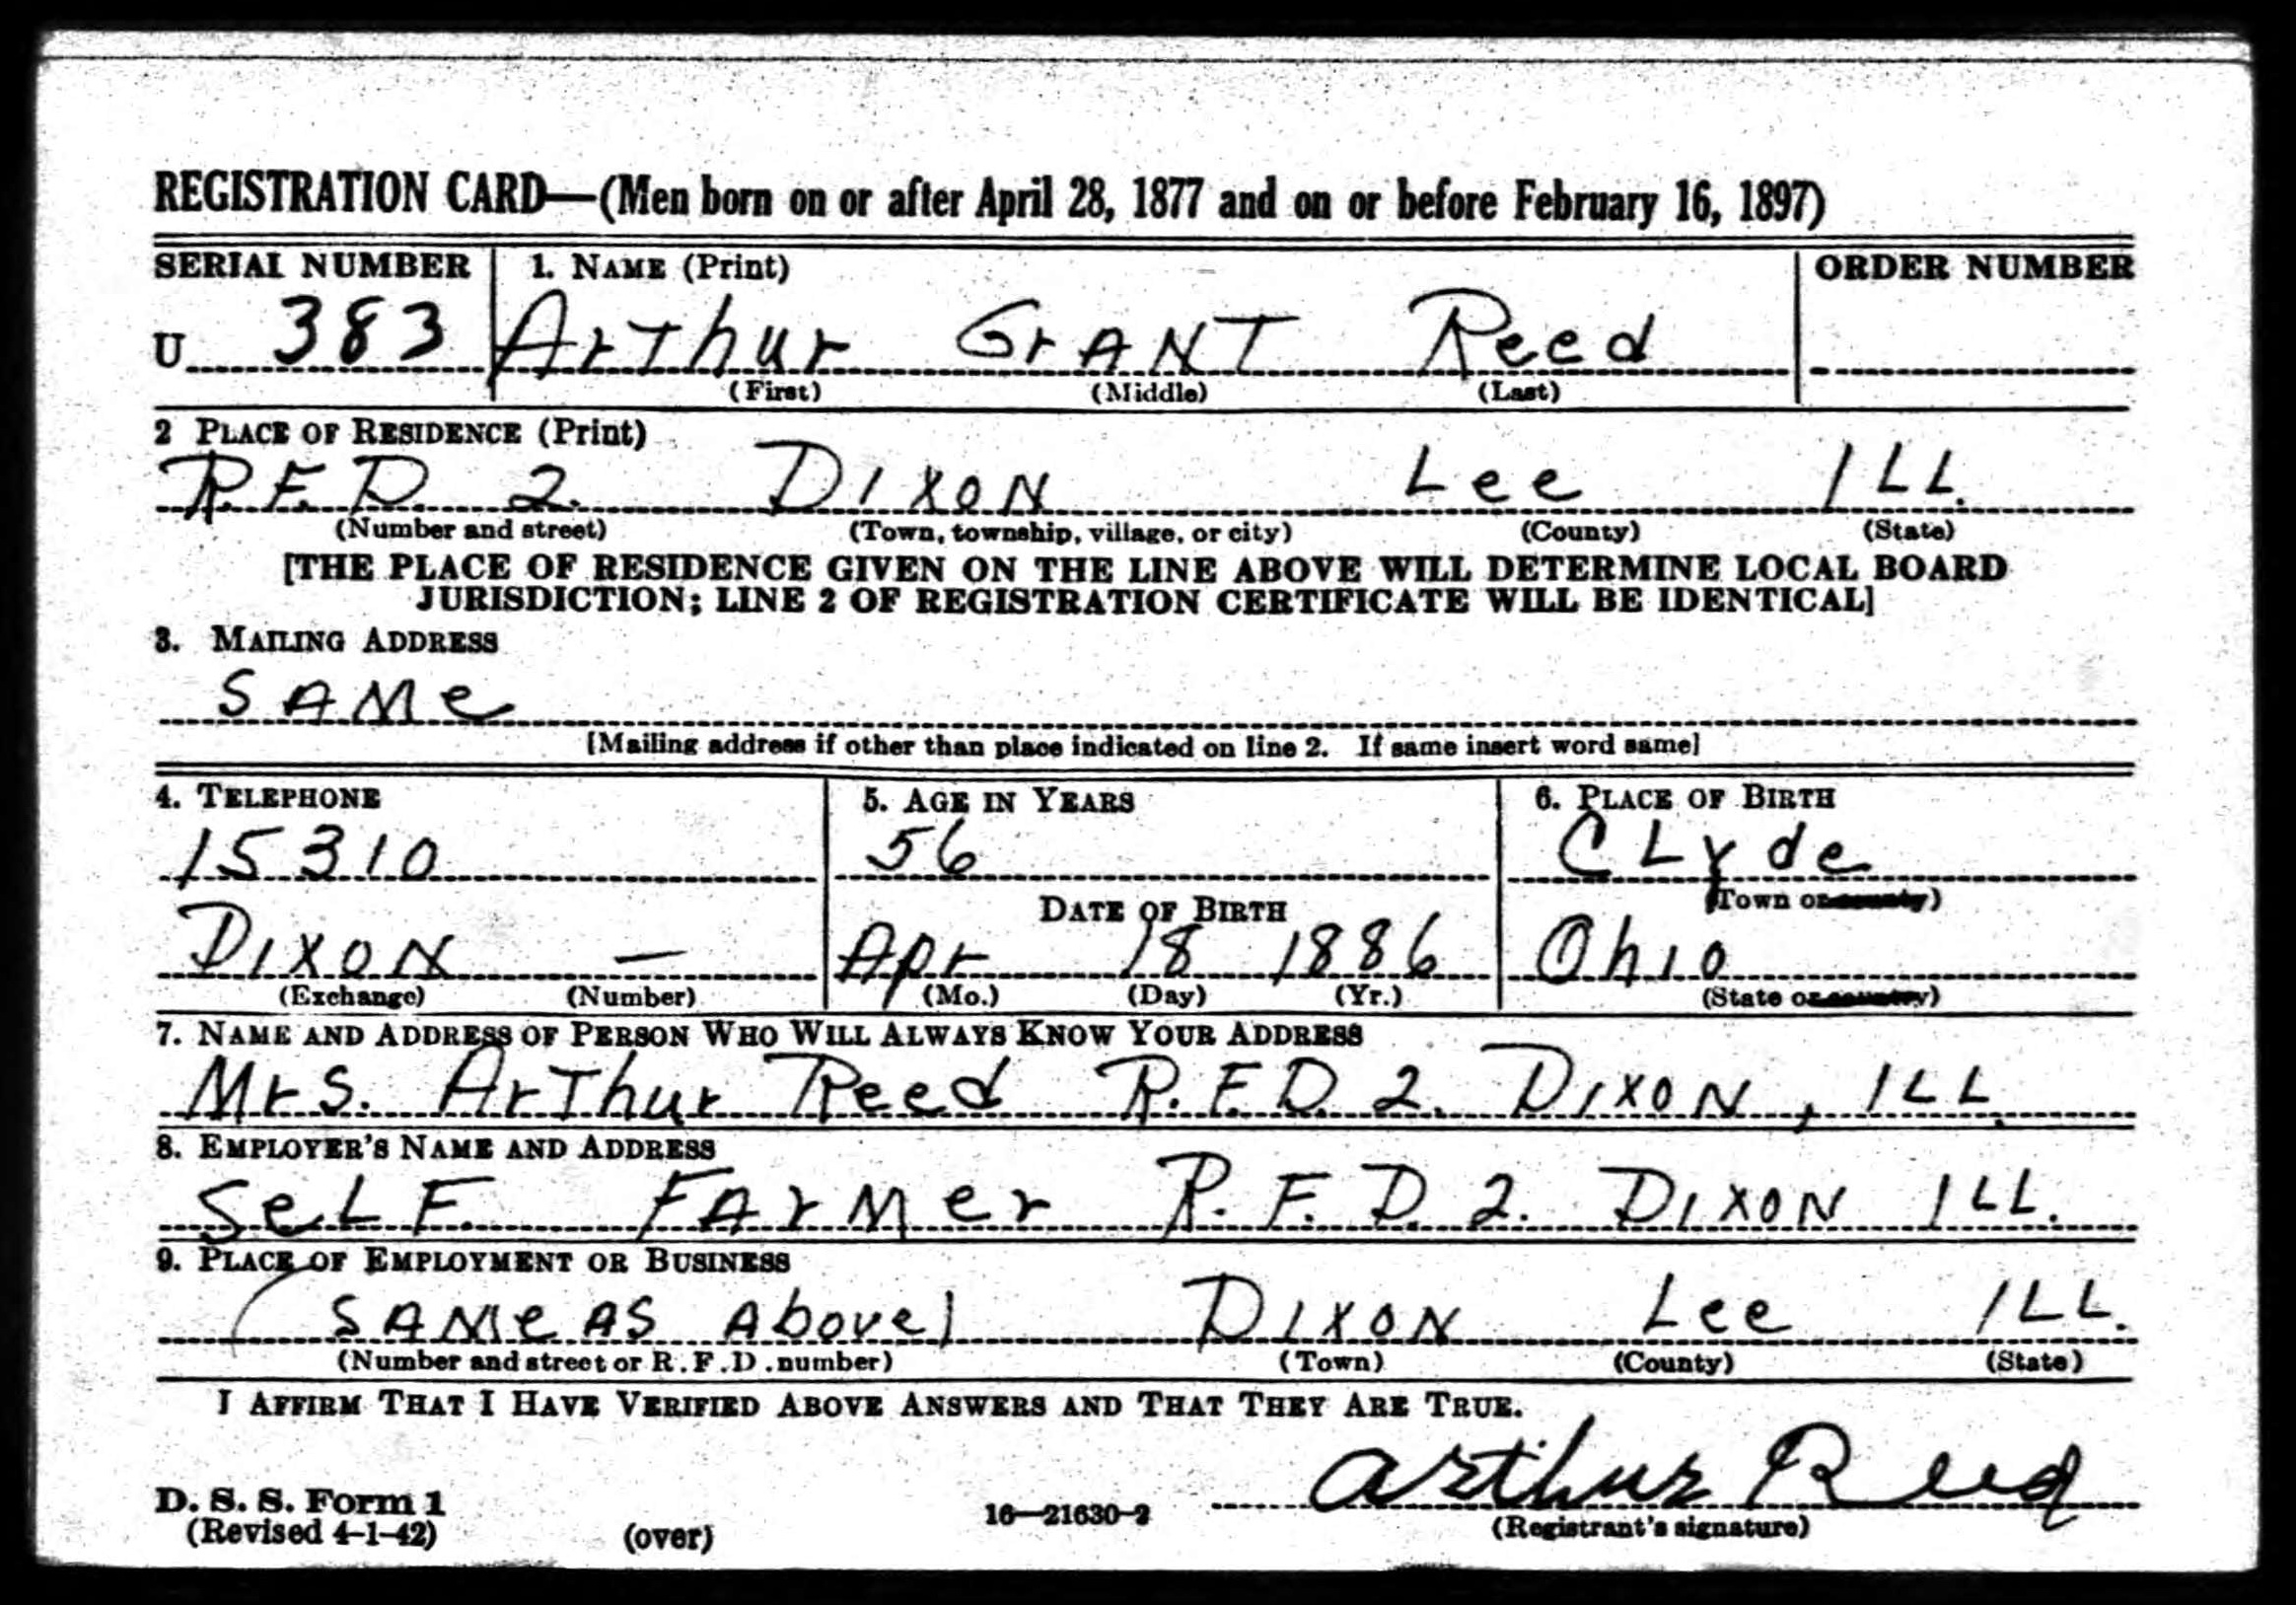 REGISTRATION CARD—(Men born on or after April 28, 1877 and on or before February 16, 1897)
SERIAL NUMBER 1. NAME (Print) ORDER NUMBER
U 383 Arthur GrANT Reed
(First) (Middle) (Last)
2 PLACE OF RESIDENCE (Print)
R.F.D. 2. DIXON Lee ILL.
(Number and street) (Town, township, village, or city) (County) (State)
[THE PLACE OF RESIDENCE GIVEN ON THE LINE ABOVE WILL DETERMINE LOCAL BOARD
JURISDICTION; LINE 2 OF REGISTRATION CERTIFICATE WILL BE IDENTICAL]
3. MAILING ADDRESS
SAMe
[Mailing address if other than place indicated on line 2. If same insert word same]
4. TELEPHONE 5. AGE IN YEARS 6. PLACE OF BIRTH
15310 56 CLyde
DATE OF BIRTH (Town or county)
DIXON — Apr 18 1886 Ohio
(Exchange) (Number) (Mo.) (Day) (Yr.) (State or country)
7. NAME AND ADDRESS OF PERSON WHO WILL ALWAYS KNOW YOUR ADDRESS
Mrs. ArThur Reed R.F.D. 2. DIXON, ILL.
8. EMPLOYER'S NAME AND ADDRESS
SeLF. FArMer R.F.D. 2. DIXON ILL.
9. PLACE OF EMPLOYMENT OR BUSINESS
(SAMe AS Above) DIXON Lee ILL.
(Number and street or R.F.D. number) (Town) (County) (State)
I AFFIRM THAT I HAVE VERIFIED ABOVE ANSWERS AND THAT THEY ARE TRUE.
Arthur Reed
D. S. S. Form 1 16—21630-2 (Registrant's signature)
(Revised 4-1-42) (over)